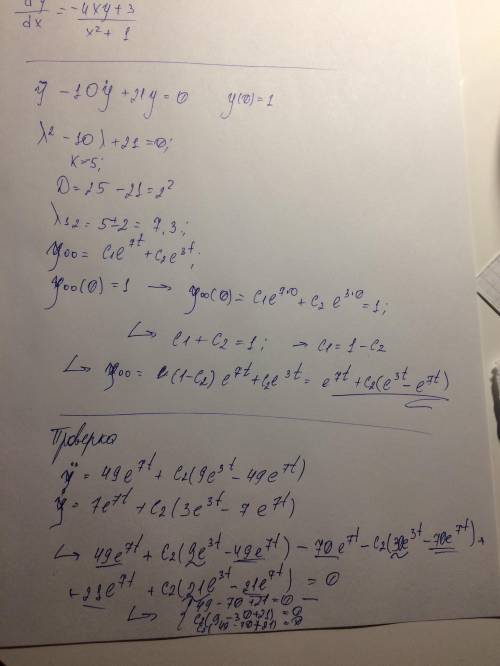 dy/dx = -4xy+3 / x²+1
ÿ - 10ẏ + 21y = 0 y(0)=1
λ² - 10λ + 21 = 0;
K=5;
D = 25 - 21 = 2²
λ12 = 5±2 = 7,3;
yoo = c1e^7t + c2e^3t;
yoo(0) = 1 → yoo(0) = c1e^7·0 + c2 e^3·0 = 1;
↳ c1 + c2 = 1; → c1 = 1 - c2
↳ yoo = (1-c2) e^7t + c2e^3t = e^7t + c2(e^3t - e^7t)
Проверка
ÿ = 49e^7t + c2(9e^3t - 49e^7t)
ẏ = 7e^7t + c2(3e^3t - 7e^7t)
↳ 49e^7t + c2(9e^3t - 49e^7t) - 70e^7t - c2(30e^3t - 70e^7t) +
+ 21e^7t + c2(21e^3t - 21e^7t) = 0
↳ { 49 - 70 + 21 = 0
c2(9 - 30 + 21) = 0
c2(49 - 70 + 21) = 0